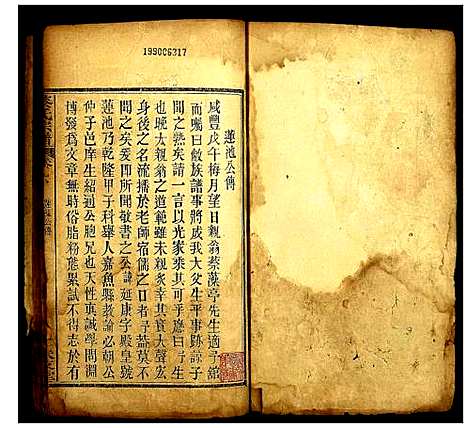 199006317
蓮池公傳
咸豐戊午梅月望日親翁蔡藻亭先生適予舘
而囑曰敝族譜事將成我大父生平事跡諒子
聞之熟矣請一言以光家乘其可乎應曰予生
也晚太親翁之道範雖未親炙幸其大聲宏
身後之名流播於老師宿儒之口者予蓋莫不
聞之矣爰即所聞敬書之公諱延康字殿皇號
蓮池乃乾隆甲子科舉人嘉魚縣教諭必朝公
仲子邑庠生紹週公胞兄也天性真誠學問淵
博發為文章無時俗脂粉態累試不得志於有